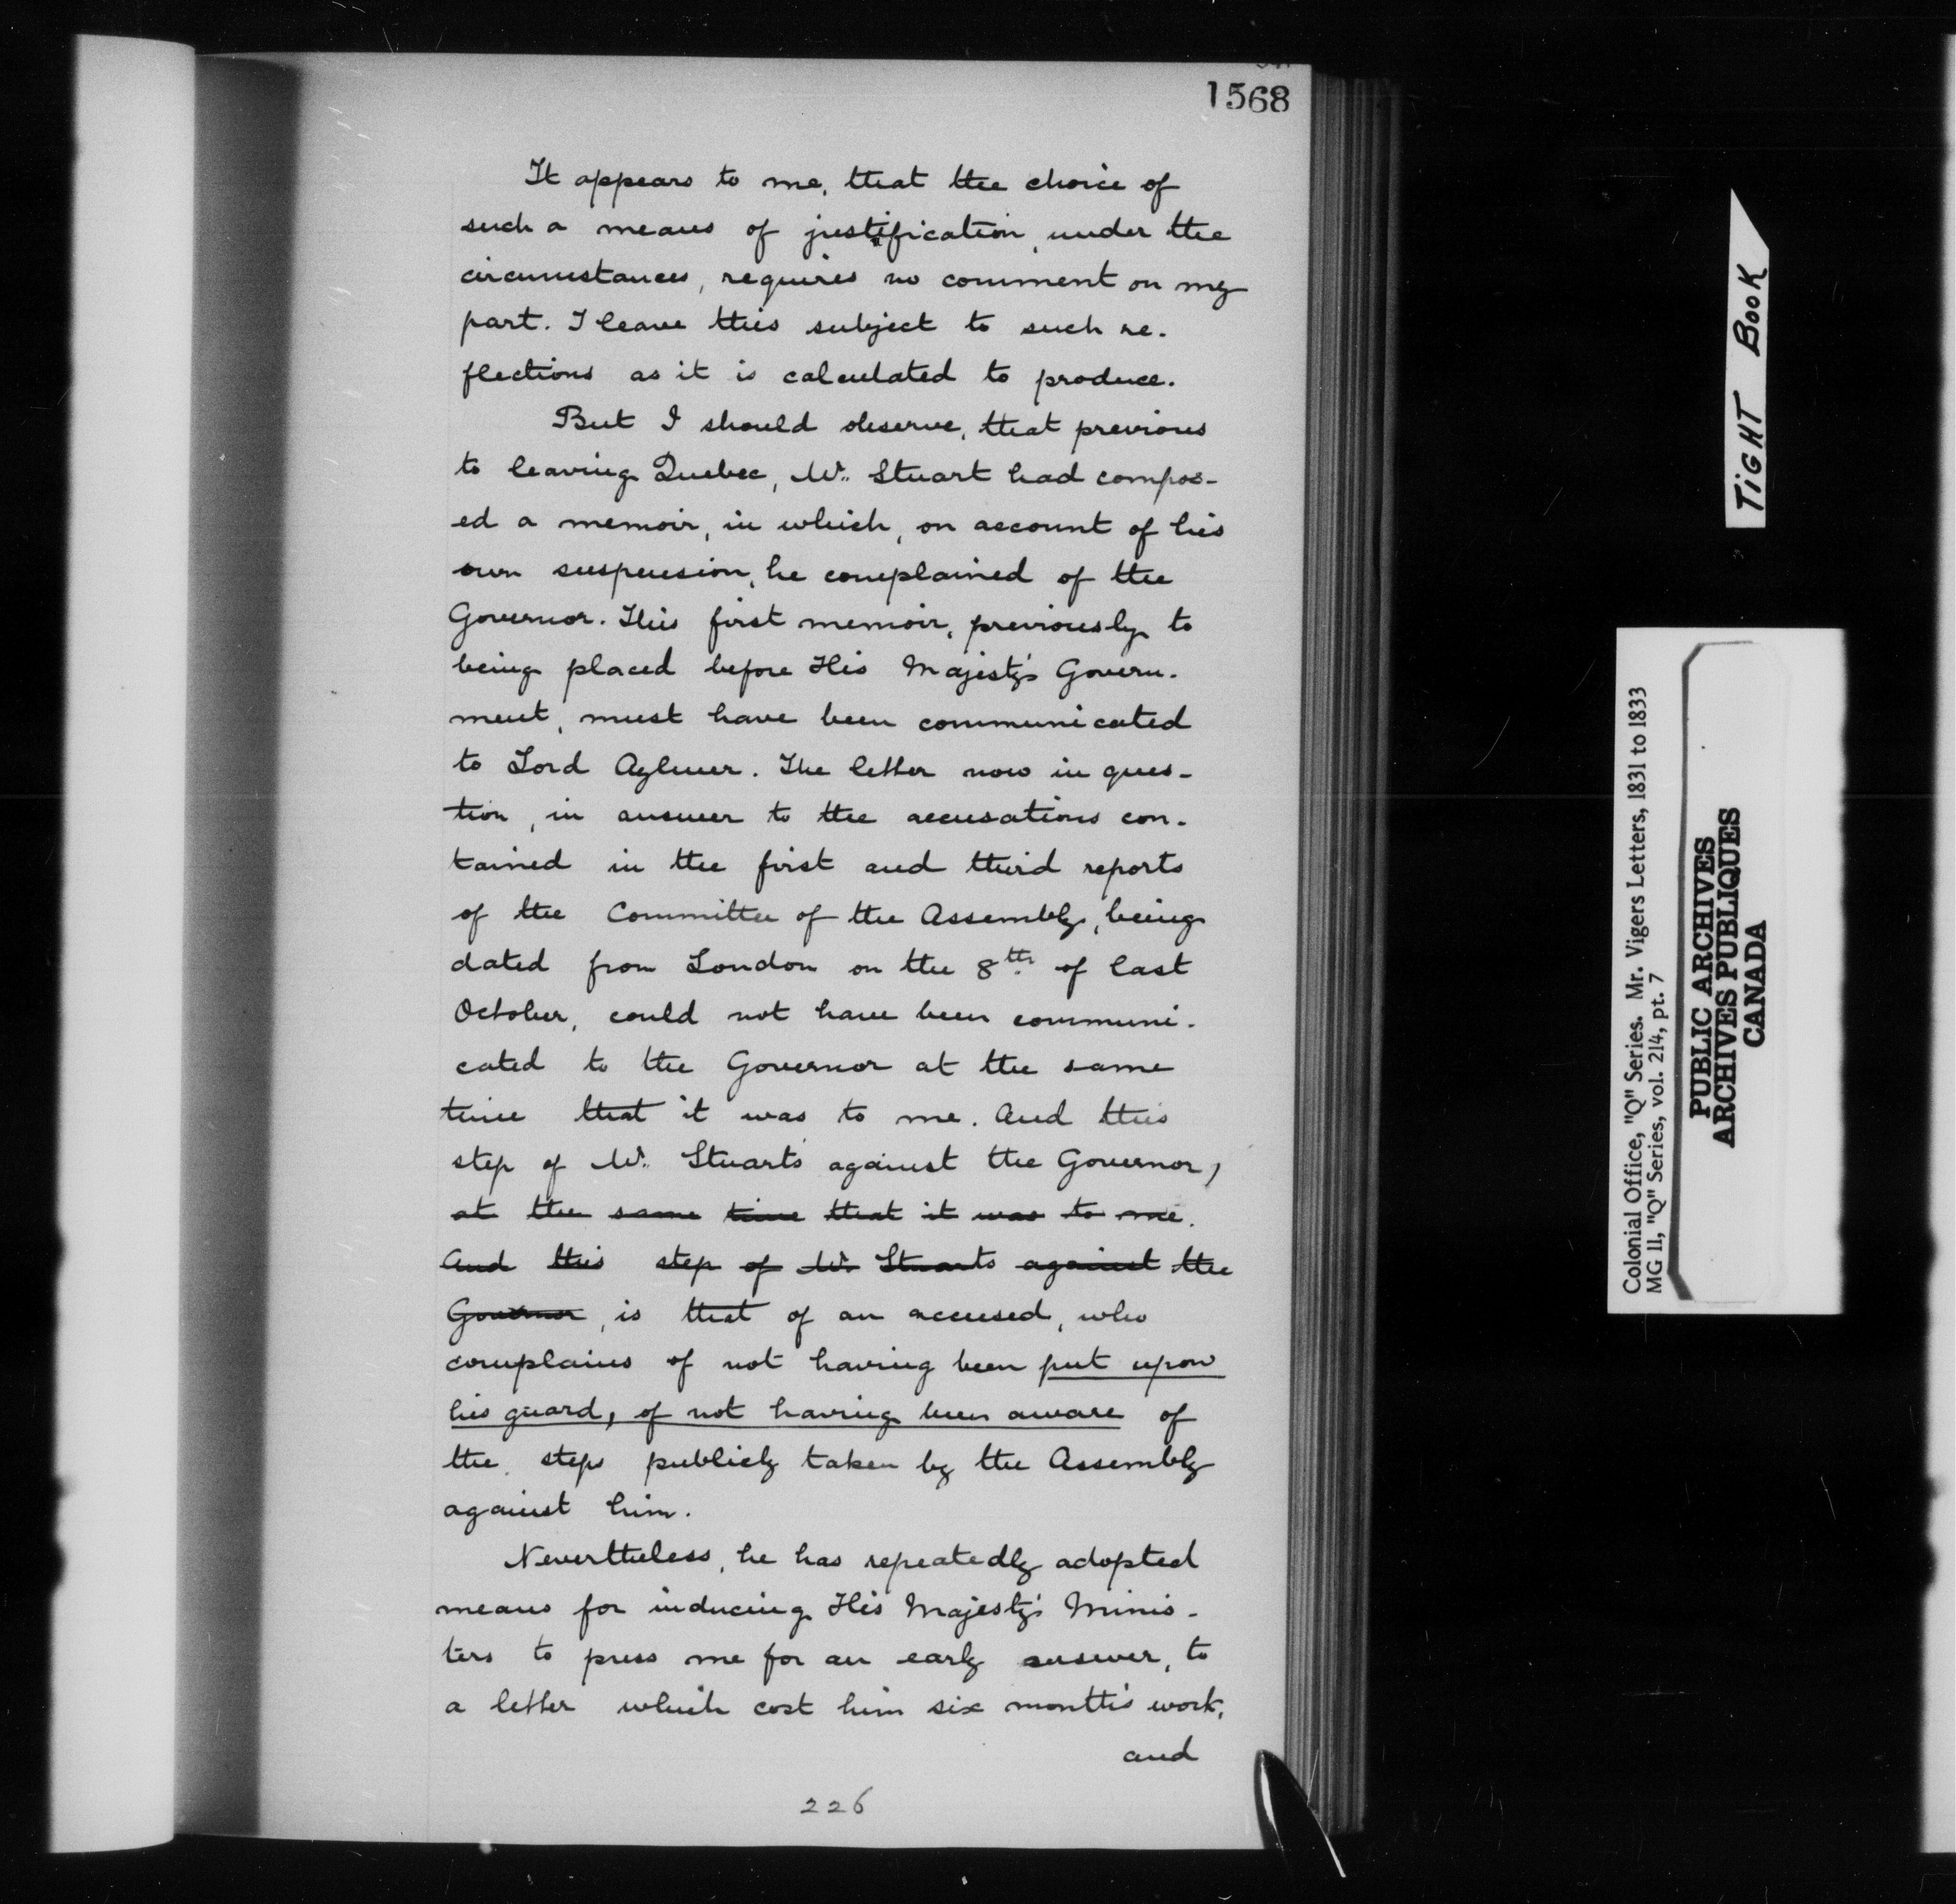 1568
It appears to me, that the choice of
such a means of justification, under the
circumstances, requires no comment on my
part. I leave this subject to such re-
flections as it is calculated to produce.
But I should observe, that previous
to leaving Quebec, Mr. Stuart had compos-
ed a memoir, in which, on account of his
own suspension, he complained of the
Governor. This first memoir, previously to
being placed before His Majesty's Govern-
ment, must have been communicated
to Lord Aylmer. The letter now in ques-
tion, in answer to the accusations con-
tained in the first and third reports
of the Committee of the Assembly, being
dated from London on the 8th of last
October, could not have been communi-
cated to the Governor at the same
time that it was to me. And this
step of Mr. Stuart's against the Governor,
at the same time that it was to me.
And this step of Mr. Stuarts against the
Governor, is that of an accused, who
complains of not having been put upon
his guard, of not having been aware of
the steps publicly taken by the Assembly
against him.
Nevertheless, he has repeatedly adopted
means for inducing His Majesty's Minis-
ters to press me for an early answer, to
a letter which cost him six month's work,
and
226
TIGHT BOOK
Colonial Office, "Q" Series. Mr. Vigers Letters, 1831 to 1833
MG 11, "Q" Series, vol. 214, pt. 7
PUBLIC ARCHIVES
ARCHIVES PUBLIQUES
CANADA